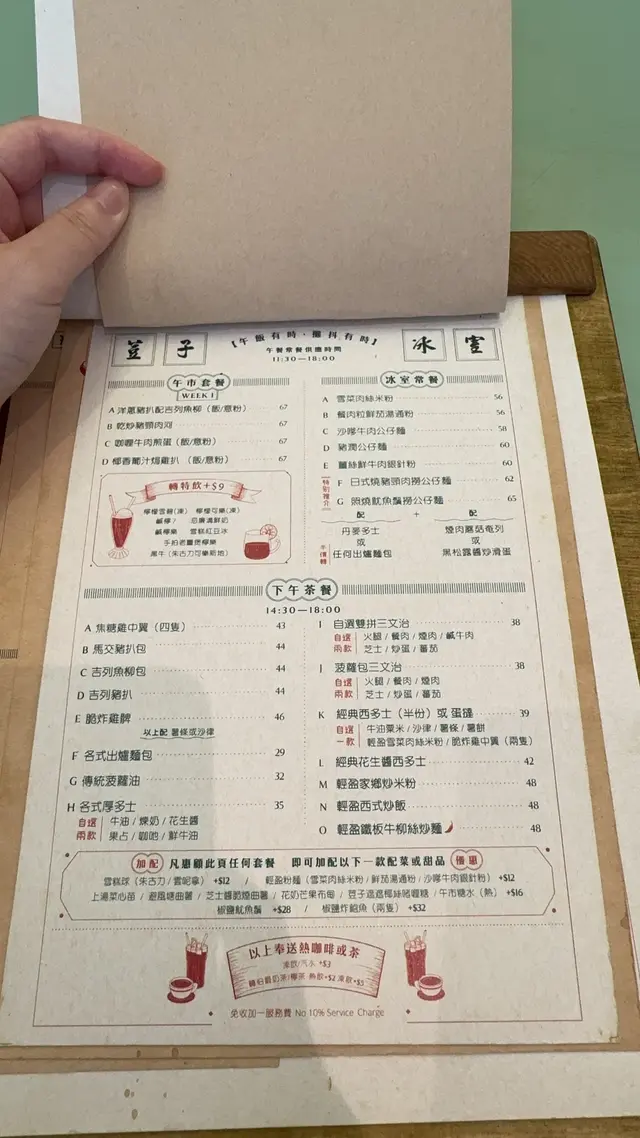 荳子 冰室
【午飯有時·攤抖有時】
午餐常餐供應時間
11:30-18:00
午市套餐
WEEK 1
A 洋蔥豬扒配吉列魚柳（飯/意粉） 67
B 乾炒豬頸肉河 67
C 咖喱牛肉煎蛋（飯/意粉） 67
D 椰香葡汁焗雞扒（飯/意粉） 67
轉特飲+$9
檸檬雪碧(凍) 檸檬可樂(凍)
鹹檸7 忌廉溝鮮奶
鹹檸樂 雪糕紅豆冰
手拍老薑煲檸樂
黑牛（朱古力可樂新地）
冰室常餐
A 雪菜肉絲米粉 56
B 餐肉粒鮮茄湯通粉 56
C 沙嗲牛肉公仔麵 58
D 豬潤公仔麵 60
E 薑絲鮮牛肉銀針粉 60
特別推介
F 日式燒豬頸肉撈公仔麵 62
G 照燒魷魚鬚撈公仔麵 65
配 + 配
丹麥多士 煙肉蘑菇奄列
或 或
任何出爐麵包 黑松露醬炒滑蛋
下午茶餐
14:30-18:00
A 焦糖雞中翼（四隻） 43
B 馬交豬扒包 44
C 吉列魚柳包 44
D 吉列豬扒 44
E 脆炸雞髀 46
以上配 薯條或沙律
F 各式出爐麵包 29
G 傳統菠蘿油 32
H 各式厚多士 35
自選 牛油 / 煉奶 / 花生醬
兩款 果占 / 咖吔 / 鮮牛油
I 自選雙拼三文治 38
自選 火腿 / 餐肉 / 煙肉 / 鹹牛肉
兩款 芝士 / 炒蛋 / 蕃茄
J 菠蘿包三文治 38
自選 火腿 / 餐肉 / 煙肉
兩款 芝士 / 炒蛋 / 蕃茄
K 經典西多士（半份）或 蛋撻 39
自選 牛油粟米 / 沙律 / 薯條 / 薯餅
一款 輕盈雪菜肉絲米粉 / 脆炸雞中翼（兩隻）
L 經典花生醬西多士 42
M 輕盈家鄉炒米粉 48
N 輕盈西式炒飯 48
O 輕盈鐵板牛柳絲炒麵 48
加配 凡惠顧此頁任何套餐 即可加配以下一款配菜或甜品 優惠
雪糕球（朱古力 / 雲呢拿）+$12 / 輕盈粉麵（雪菜肉絲米粉 / 鮮茄湯通粉 / 沙嗲牛肉銀針粉）+$12
上湯菜心苗 / 避風塘曲薯 / 芝士醬脆煙曲薯 / 花奶芒果布甸 / 荳子遮遮椰絲啫喱糖 / 午市糖水（熱）+$16
椒鹽魷魚鬚 +$28 / 椒鹽炸鮊魚（兩隻）+$32
以上奉送熱咖啡或茶
凍飲/汽水 +$3
免收加一服務費 No 10% Service Charge